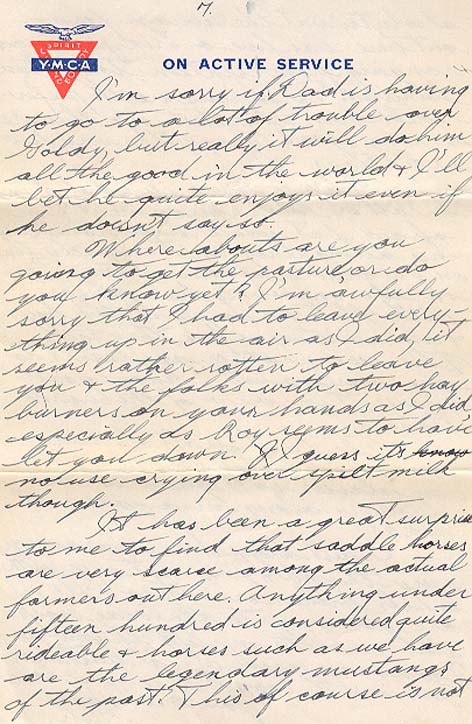 7.
SPIRIT
Y·M·C·A
MIND BODY
ON ACTIVE SERVICE
I'm sorry if Dad is having
to go to a lot of trouble over
Goldy, but really it will do him
all the good in the world & I'll
bet he quite enjoys it even if
he doesn't say so.
Where abouts are you
going to get the pasture or do
you know yet? I'm awfully
sorry that I had to leave every-
thing up in the air as I did, it
seems rather rotten to leave
you & the folks with two hay
burners on your hands as I did
especially as Roy seems to have
let you down. I guess it's know
no use crying over spilt milk
though.
It has been a great surprise
to me to find that saddle horses
are very scarce among the actual
farmers out here. Anything under
fifteen hundred is considered quite
rideable & horses such as we have
are the legendary mustangs
of the past. This of course is not